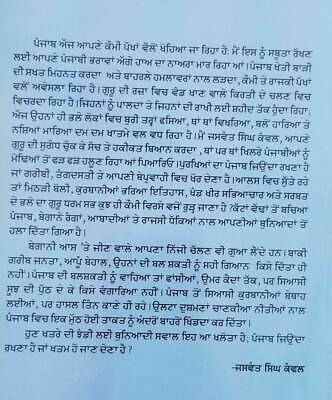 ਪੰਜਾਬ ਅੱਜ ਆਪਣੇ ਕੌਮੀ ਪੱਖਾਂ ਵੱਲੋਂ ਖੋਹਿਆ ਜਾ ਰਿਹਾ ਹੈ; ਮੈਂ ਇਸ ਨੂੰ ਸਬੂਤਾ ਰੱਖਣ
ਲਈ ਆਪਣੇ ਪੰਜਾਬੀ ਭਰਾਵਾਂ ਅੱਗੇ ਹਾਅ ਦਾ ਨਾਅਰਾ ਮਾਰ ਰਿਹਾ ਆਂ। ਪੰਜਾਬ ਖੇਤੀ ਬਾੜੀ
ਦੀ ਸਖਤ ਮਿਹਨਤ ਕਰਦਾ ਅਤੇ ਬਾਹਰਲੇ ਹਮਲਾਵਰਾਂ ਨਾਲ ਲੜਦਾ, ਕੌਮੀ ਤੇ ਰਾਜਕੀ ਪੱਖਾਂ
ਵਲੋਂ ਅਵੇਸਲਾ ਰਿਹਾ ਹੈ। ਗੁਰੂ ਦੀ ਰਜ਼ਾ ਵਿਚ ਵੰਡ ਖਾਣ ਵਾਲੇ ਕਿਰਤੀ ਦੇ ਚਲਣ ਵਿਚ
ਵਿਚਰਦਾ ਰਿਹਾ ਹੈ। ਜਿਹਨਾਂ ਨੂੰ ਪਾਲਦਾ ਤੇ ਜਿਹਨਾਂ ਦੀ ਰਾਖੀ ਲਈ ਸ਼ਹੀਦ ਹੁੰਦਾ ਰਿਹਾ;
ਅੱਜ ਉਹਨਾਂ ਹੀ ਭਲੇ ਲੋਕਾਂ ਵਿਚ ਬੁਰੀ ਤਰ੍ਹਾਂ ਫਸਿਆ, ਥਾਂ ਥਾਂ ਵਿਖਰਿਆ, ਬਲੋਂ ਹਾਰਿਆ ਤੇ
ਨਸ਼ਿਆਂ ਮਾਰਿਆ ਦਮ ਦਮ ਖਾਤਮੇ ਵਲ ਵਧ ਰਿਹਾ ਹੈ। ਮੈਂ ਜਸਵੰਤ ਸਿੰਘ ਕੰਵਲ, ਆਪਣੇ
ਗੁਰੂ ਦੀ ਸਰੁੱਧ ਚੁੱਕ ਕੇ ਸੱਚ ਤੇ ਹਕੀਕਤ ਬਿਆਨ ਕਰਦਾ, ਥਾਂ ਪਰ ਥਾਂ ਖਿਲਰੇ ਪੰਜਾਬੀਆਂ ਨੂੰ
ਮੌਢਿਆਂ ਤੋਂ ਫੜ ਫੜ ਹਲੂਣ ਰਿਹਾ ਆਂ ਪਿਆਰਿਓ। ਪੁਰਖਿਆਂ ਦਾ ਪੰਜਾਬ ਜਿਉਂਦਾ ਰਖਣਾ ਹੈ
ਜਾਂ ਗਰੀਬੀ, ਤੰਗਦਸਤੀ ਤੇ ਆਪਣੀ ਬੇਪ੍ਰਵਾਹੀ ਵਿਚ ਖੋਰ ਦੇਣਾ ਹੈ। ਆਲਸ ਵਿਚ ਸੁੱਤੇ ਰਹੇ
ਤਾਂ ਮਿਠੜੀ ਬੋਲੀ, ਕੁਰਬਾਨੀਆਂ ਭਰਿਆ ਇਤਿਹਾਸ, ਖੰਡ ਖੀਰ ਸਭਿਆਚਾਰ ਅਤੇ ਸਰਬਤ
ਦੇ ਭਲੇ ਦਾ ਗੁਰੂ ਧਰਮ ਸਭ ਕੁਝ ਹੀ ਕੌਮੀ ਵਿਰਸੇ ਵਜੋਂ ਰੁੜ੍ਹ ਜਾਣਾ ਹੈ। ਕੱਟਾਂ ਵੱਢਾਂ ਤੋਂ ਬਚਿਆ
ਪੰਜਾਬ, ਬੇਗਾਨੇ ਰੰਗਾਂ, ਆਬਾਦੀਆਂ ਤੇ ਰਾਜਸੀ ਧੱਕਿਆਂ ਨਾਲ ਆਪਣੀਆਂ ਬੁਨਿਆਦਾਂ ਤੋਂ
ਹਲਾ ਦਿੱਤਾ ਗਿਆ ਹੈ।
ਬੇਗਾਨੀ ਆਸ 'ਤੇ ਜੀਣ ਵਾਲੇ ਆਪਣਾ ਨਿੱਜੀ ਚੱਲਣ ਵੀ ਗੁਆ ਲੈਂਦੇ ਹਨ। ਬਾਕੀ
ਗਰੀਬ ਜਨਤਾ, ਆਪੂੰ ਬੇਹਾਲ, ਉਹਨਾਂ ਦੀ ਬਲ ਸ਼ਕਤੀ ਨੂੰ ਸਹੀ ਗਿਆਨ ਕਿਸੇ ਦਿੱਤਾ ਹੀ
ਨਹੀਂ। ਪੰਜਾਬ ਦੀ ਬਲਸ਼ਕਤੀ ਨੂੰ ਵਾਹਿਆ ਤਾਂ ਫਾਂਸੀਆਂ, ਉਮਰ ਕੈਦਾਂ ਤੱਕ, ਪਰ ਸਿਆਸੀ
ਸੂਝ ਦੀ ਪੁੱਠ ਦੇ ਕੇ ਕਿਸੇ ਵੰਗਾਰਿਆ ਨਹੀਂ। ਪੰਜਾਬ ਤੋਂ ਸਿਆਸੀ ਕੁਰਬਾਨੀਆਂ ਬੇਥਾਹ
ਲਈਆਂ, ਪਰ ਹਾਸਲ ਤਿੰਨ ਕਾਣੇ ਹੀ ਰਹੇ। ਉਲਟਾ ਦੁਸ਼ਮਣਾਂ ਚਾਣਕੀਆ ਨੀਤੀਆਂ ਨਾਲ
ਪੰਜਾਬ ਵਿਚ ਇਕ ਮੁੱਠ ਹੋਈ ਤਾਕਤ ਨੂੰ ਅੰਦਰੋਂ ਬਾਹਰੋਂ ਖਿੰਡਾ ਕਰ ਦਿੱਤਾ।
ਹੁਣ ਖਤਰੇ ਦੀ ਝੰਡੀ ਲਈ ਬੁਨਿਆਦੀ ਸਵਾਲ ਇਹ ਆ ਖਲੋਤਾ ਹੈ; ਪੰਜਾਬ ਜਿਉਂਦਾ
ਰਖਣਾ ਹੈ ਜਾਂ ਖਤਮ ਹੋ ਜਾਣ ਦੇਣਾ ਹੈ?
-ਜਸਵੰਤ ਸਿੰਘ ਕੰਵਲ